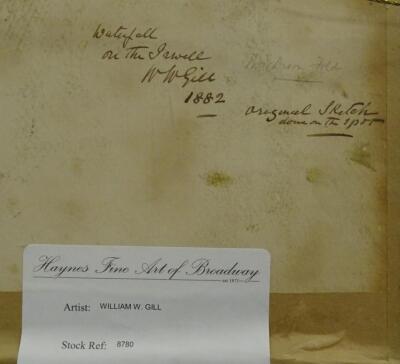 Waterfall
on the Irwell
W W Gill
1882
Fold
original Sketch
done on the spot
Haynes Fine Art of Broadway
est 1971
Artist: WILLIAM W. GILL
Stock Ref: 8780